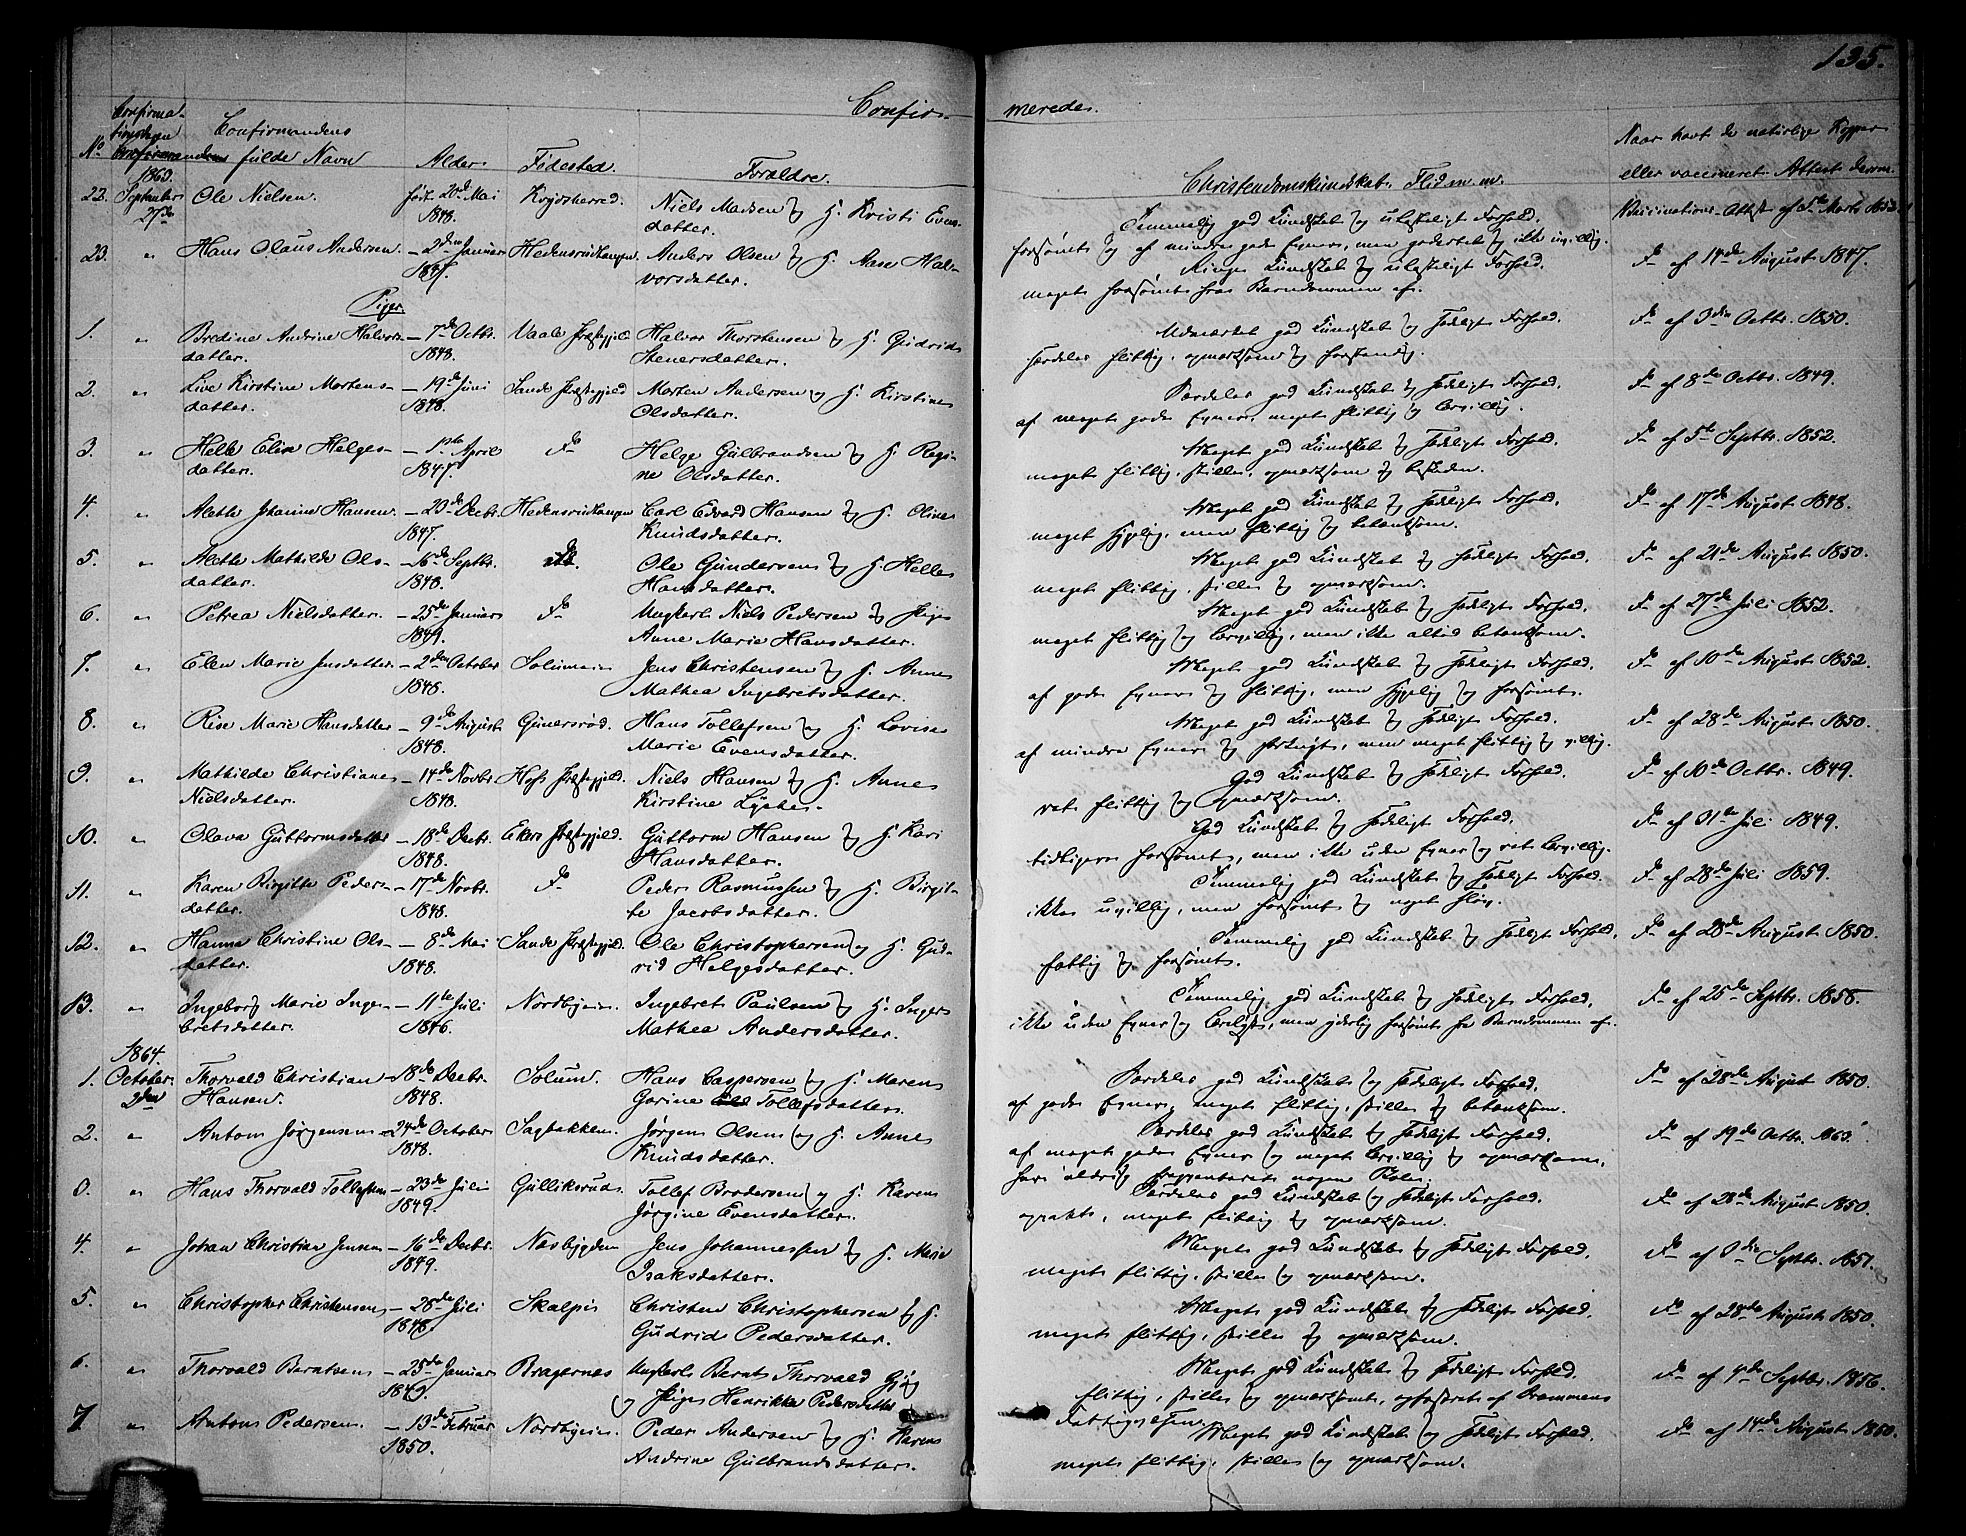 135.
Confir-
meredes.
Confirma-
tionsdagen
Confirmandens
No. fulde Navn Alder. Fødested. Forældre.
Christendomskundskab. Flid m. m.
Naar havt de naturlige Kopper
eller vaccineret. Attest derom.
1863.
22. September Ole Nielsen. født 20de Mai Krydsherred. Niels Madsen og H. Kristi Evens-
27de 1848. datter.
Temmelig god Kundskab og ulasteligt Forhold.
forsømt og af mindre gode Evner, men godartet og ikke uvillig.
23. " Hans Olaus Andersen. – 2den Januar Hedensrudtangen. Anders Olsen og H. Aase Hal-
1847. vorsdatter.
Ringe Kundskab og ulasteligt Forhold.
meget forsømt fra Barndommen af.
Do af 14de August 1847.
Piger
1. " Bredine Andrine Halvors- – 7de Octbr. Vaale Præstegjeld Halvor Thorstensen og H. Gudrid
datter. 1848.
Udmærket god Kundskab og sædeligt Forhold.
særdeles flittig, opmærksom og forstandig.
Do af 3die Octbr. 1850.
2. " Live Kirstine Mortens- – 19de Juni Sande Præstegjeld Morten Andersen og H. Kirstine
datter. 1848. Olsdatter.
Særdeles god Kundskab og sædeligt Forhold.
af meget gode Evner, meget flittig og lærvillig.
Do af 8de Octbr. 1849.
3. " Helle Elise Helges- – 1ste April Do Helge Gulbrandsen og H. Regi-
datter. 1847. ne Olsdatter.
Meget god Kundskab og sædeligt Forhold.
meget flittig, stille, opmærksom og beskeden.
Do af 5te Septbr. 1852.
4. " Alette Johanne Hansen. – 20de Decbr. Hedensrudtangen Carl Edvard Hansen og H. Oline
1847. Knudsdatter.
Meget god Kundskab og sædeligt Forhold.
meget sygelig, men flittig og betænksom.
Do af 17de August 1848.
5. " Alette Mathilde Ols- – 16de Septbr. Do Ole Gundersen og H. Helle
datter. 1848. Hansdatter.
Meget god Kundskab og sædeligt Forhold.
meget flittig, stille og opmærksom.
Do af 21de August 1850.
6. " Petrea Nielsdatter. – 25de Januar Do Ungkarl Niels Pedersen og Pige
1849. Anne Marie Hansdatter.
Meget god Kundskab og sædeligt Forhold.
meget flittig og lærvillig, men ikke altid betænksom.
Do af 27de Juli 1852.
7. " Elen Marie Jensdatter – 2den October Solumeie Jens Christensen og H. Anne
1848. Mathea Ingebretsdatter.
Meget god Kundskab og sædeligt Forhold.
af gode Evner og flittig, men sygelig og forsømt.
Do af 10de August 1852.
8. " Rise Marie Hansdatter – 9de August Gunersrød. Hans Tollefsen og H. Lovise
1848. Marie Evensdatter.
Meget god Kundskab og sædeligt Forhold.
af mindre Evner og, men meget flittig og villig.
Do af 28de August 1850.
9. " Mathilde Christiane – 14de Novbr. Hofs Præstegjeld. Niels Hansen og H. Anne
Nielsdatter. 1848. Kirstine
God Kundskab og sædeligt Forhold.
ret flittig og opmærksom.
Do af 10de Octbr. 1849.
10. " Olava Guttormsdatter – 18de Decbr. Ekers Præstegjeld. Guttorm Hansen og H. Kari
1848. Hansdatter.
God Kundskab og sædeligt Forhold.
tidligere forsømt, men ikke uden Evner og ret lærvillig.
Do af 31te Juli 1849.
11. " Karen Birgitte Peders- – 17de Novbr. Do Peder Rasmussen og H. Birgit-
datter. 1848. te Jacobsdatter.
Temmelig god Kundskab og sædeligt Forhold.
ikke uvillig, men forsømt og noget sløv.
Do af 28de Juli 1859.
12. " Hanna Christine Ols- – 8de Mai Sande Præstegjeld. Ole Christophersen og H. Gud-
datter. 1848. rid Helgesdatter.
Temmelig god Kundskab og sædeligt Forhold.
fattig og forsømt.
Do af 28de August 1850.
13. " Ingeborg Marie Inge- – 11te Juli Nordbyeie. Ingebret Paulsen og H. Inger
bretsdatter. 1846. Mathea Andersdatter.
Temmelig god Kundskab og sædeligt Forhold,
ikke uden Evner og, men yderlig forsømt fra Barndommen af.
Do af 25de Septbr. 1858.
1864.
1. October Thorvald Christian – 18de Decbr. Solum. Hans Caspersen og H. Maren
2den Hansen. 1848. Gorine Tollefsdatter.
Særdeles god Kundskab og sædeligt Forhold.
af gode Evner, meget flittig, stille og betænksom.
Do af 28de August 1850.
2. " Anton Jørgensen – 24de October Sagbakken. Jørgen Olsen og H. Anne
1848. Knudsdatter.
Særdeles god Kundskab og sædeligt Forhold.
af meget gode Evner og meget lærvillig og opmærksom,
har aldrig frequenteret nogen Skole.
Do af 19de Octbr. 1863.
3. " Hans Thorvald Tollefsen – 23de Juli Gulliksrud. Tollef Brodersen og H. Karen
1849. Jørgine Evensdatter.
Særdeles god Kundskab og sædeligt Forhold.
meget flittig og opmærksom.
Do af 28de August 1850.
4. " Johan Christian Jensen – 16de Decbr. Næsbygden Jens Johannessen og H. Marie
1849. Isaksdatter.
Meget god Kundskab og sædeligt Forhold,
meget flittig, stille og opmærksom.
Do af 3die Septbr. 1851.
5. " Christopher Christensen – 28de Juli Skalpis Christen Christophersen og H.
1848. Gudrid Pedersdatter.
Meget god Kundskab og sædeligt Forhold.
meget flittig, stille og opmærksom.
Do af 28de August 1850.
6. " Thorvald Berntsen – 25de Januar Bragernes Ungkarl Bernt Thorvald
1849. og Pige Henrikke Pedersdatter
Meget god Kundskab og sædeligt Forhold.
flittig, stille og opmærksom, opfostret af Drammens
Fattigvæsen.
Do af 4de Septbr. 1856.
7. " Anton Pedersen. – 13de Februar Nordbyeie. Peder Andersen og H. Karen
1850. Andrine Gulbrandsdatter.
Meget god Kundskab og sædeligt Forhold.
meget flittig, stille og opmærksom.
Do af 14de August 1860.